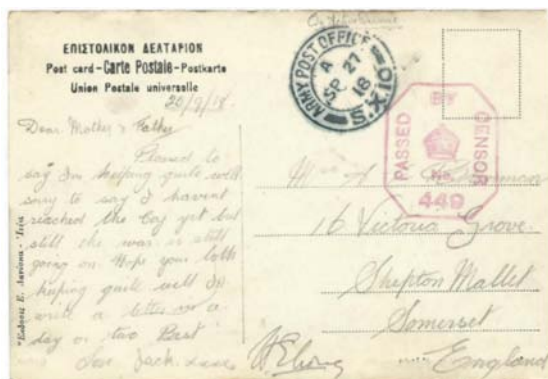 On Active Service
ΕΠΙΣΤΟΛΙΚΟΝ ΔΕΛΤΑΡΙΟΝ
Post card-Carte Postale-Postkarte
Union Postale universelle
20/9/18.
Dear Mother & Father
Pleased to
say Im keeping quite well
sorry to say I havent
reached the yet but
still the war is still
going on. Hope your both
keeping quite well Ill
write a letter in a
day or two Best
love Jack. xxxx
ARMY POST OFFICE
A
SP 27
18
S.X.10
PASSED BY CENSOR
No.
449
M
16 Victoria Grove.
Shepton Mallet
Somerset
England